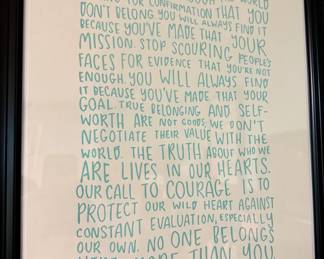 THE WORLD
FOR CONFIRMATION THAT YOU
DON'T BELONG. YOU WILL ALWAYS FIND IT
BECAUSE YOU'VE MADE THAT YOUR
MISSION. STOP SCOURING PEOPLE'S
FACES FOR EVIDENCE THAT YOU'RE NOT
ENOUGH. YOU WILL ALWAYS FIND
IT BECAUSE YOU'VE MADE THAT YOUR
GOAL. TRUE BELONGING AND SELF-
WORTH ARE NOT GOODS; WE DON'T
NEGOTIATE THEIR VALUE WITH THE
WORLD. THE TRUTH ABOUT WHO WE
ARE LIVES IN OUR HEARTS.
OUR CALL TO COURAGE IS TO
PROTECT OUR WILD HEART AGAINST
CONSTANT EVALUATION, ESPECIALLY
OUR OWN. NO ONE BELONGS
HERE MORE THAN YOU